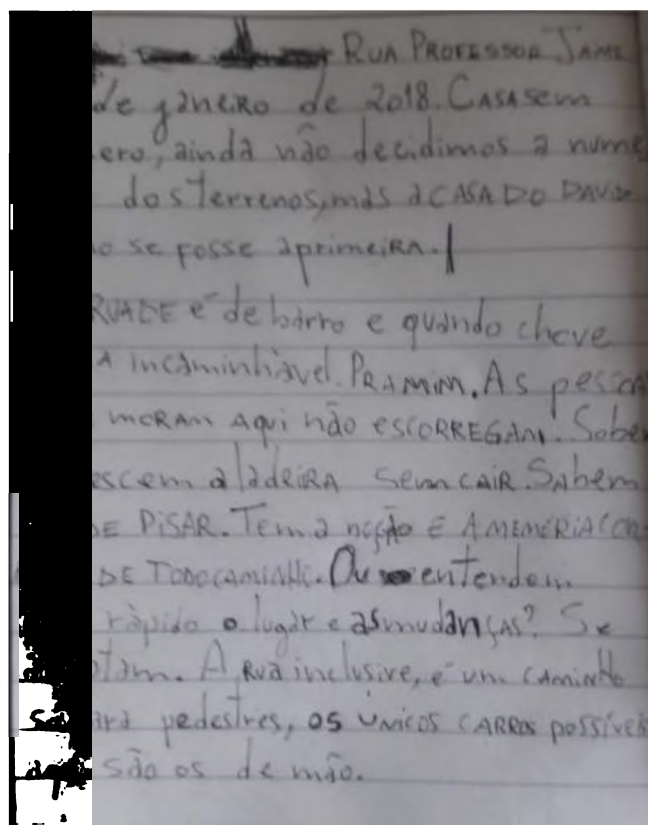 RUA PROFESSOR JAME
de janeiro de 2018. CASA sem
ero, ainda não decidimos a nume
dos terrenos, mas a CASA DO DAVID
o se fosse a primeira.
RUA DE é de barro e quando chove
A incaminhável. PRA MIM. As pessoa
MORAM AQUI não ESCORREGAM. Sobe
escem a ladeiRA Sem CAIR. SAbem
DE PISAR. Tem a noção E A MEMÓRIA COR
DE TODO CAMINHO. Ou entendem
rápido o lugar e as mudanças? Se
tam. A RUA inclusive, é um CAMINHO
ara pedestres, os ÚNICOS CARROS possíveis
são os de mão.